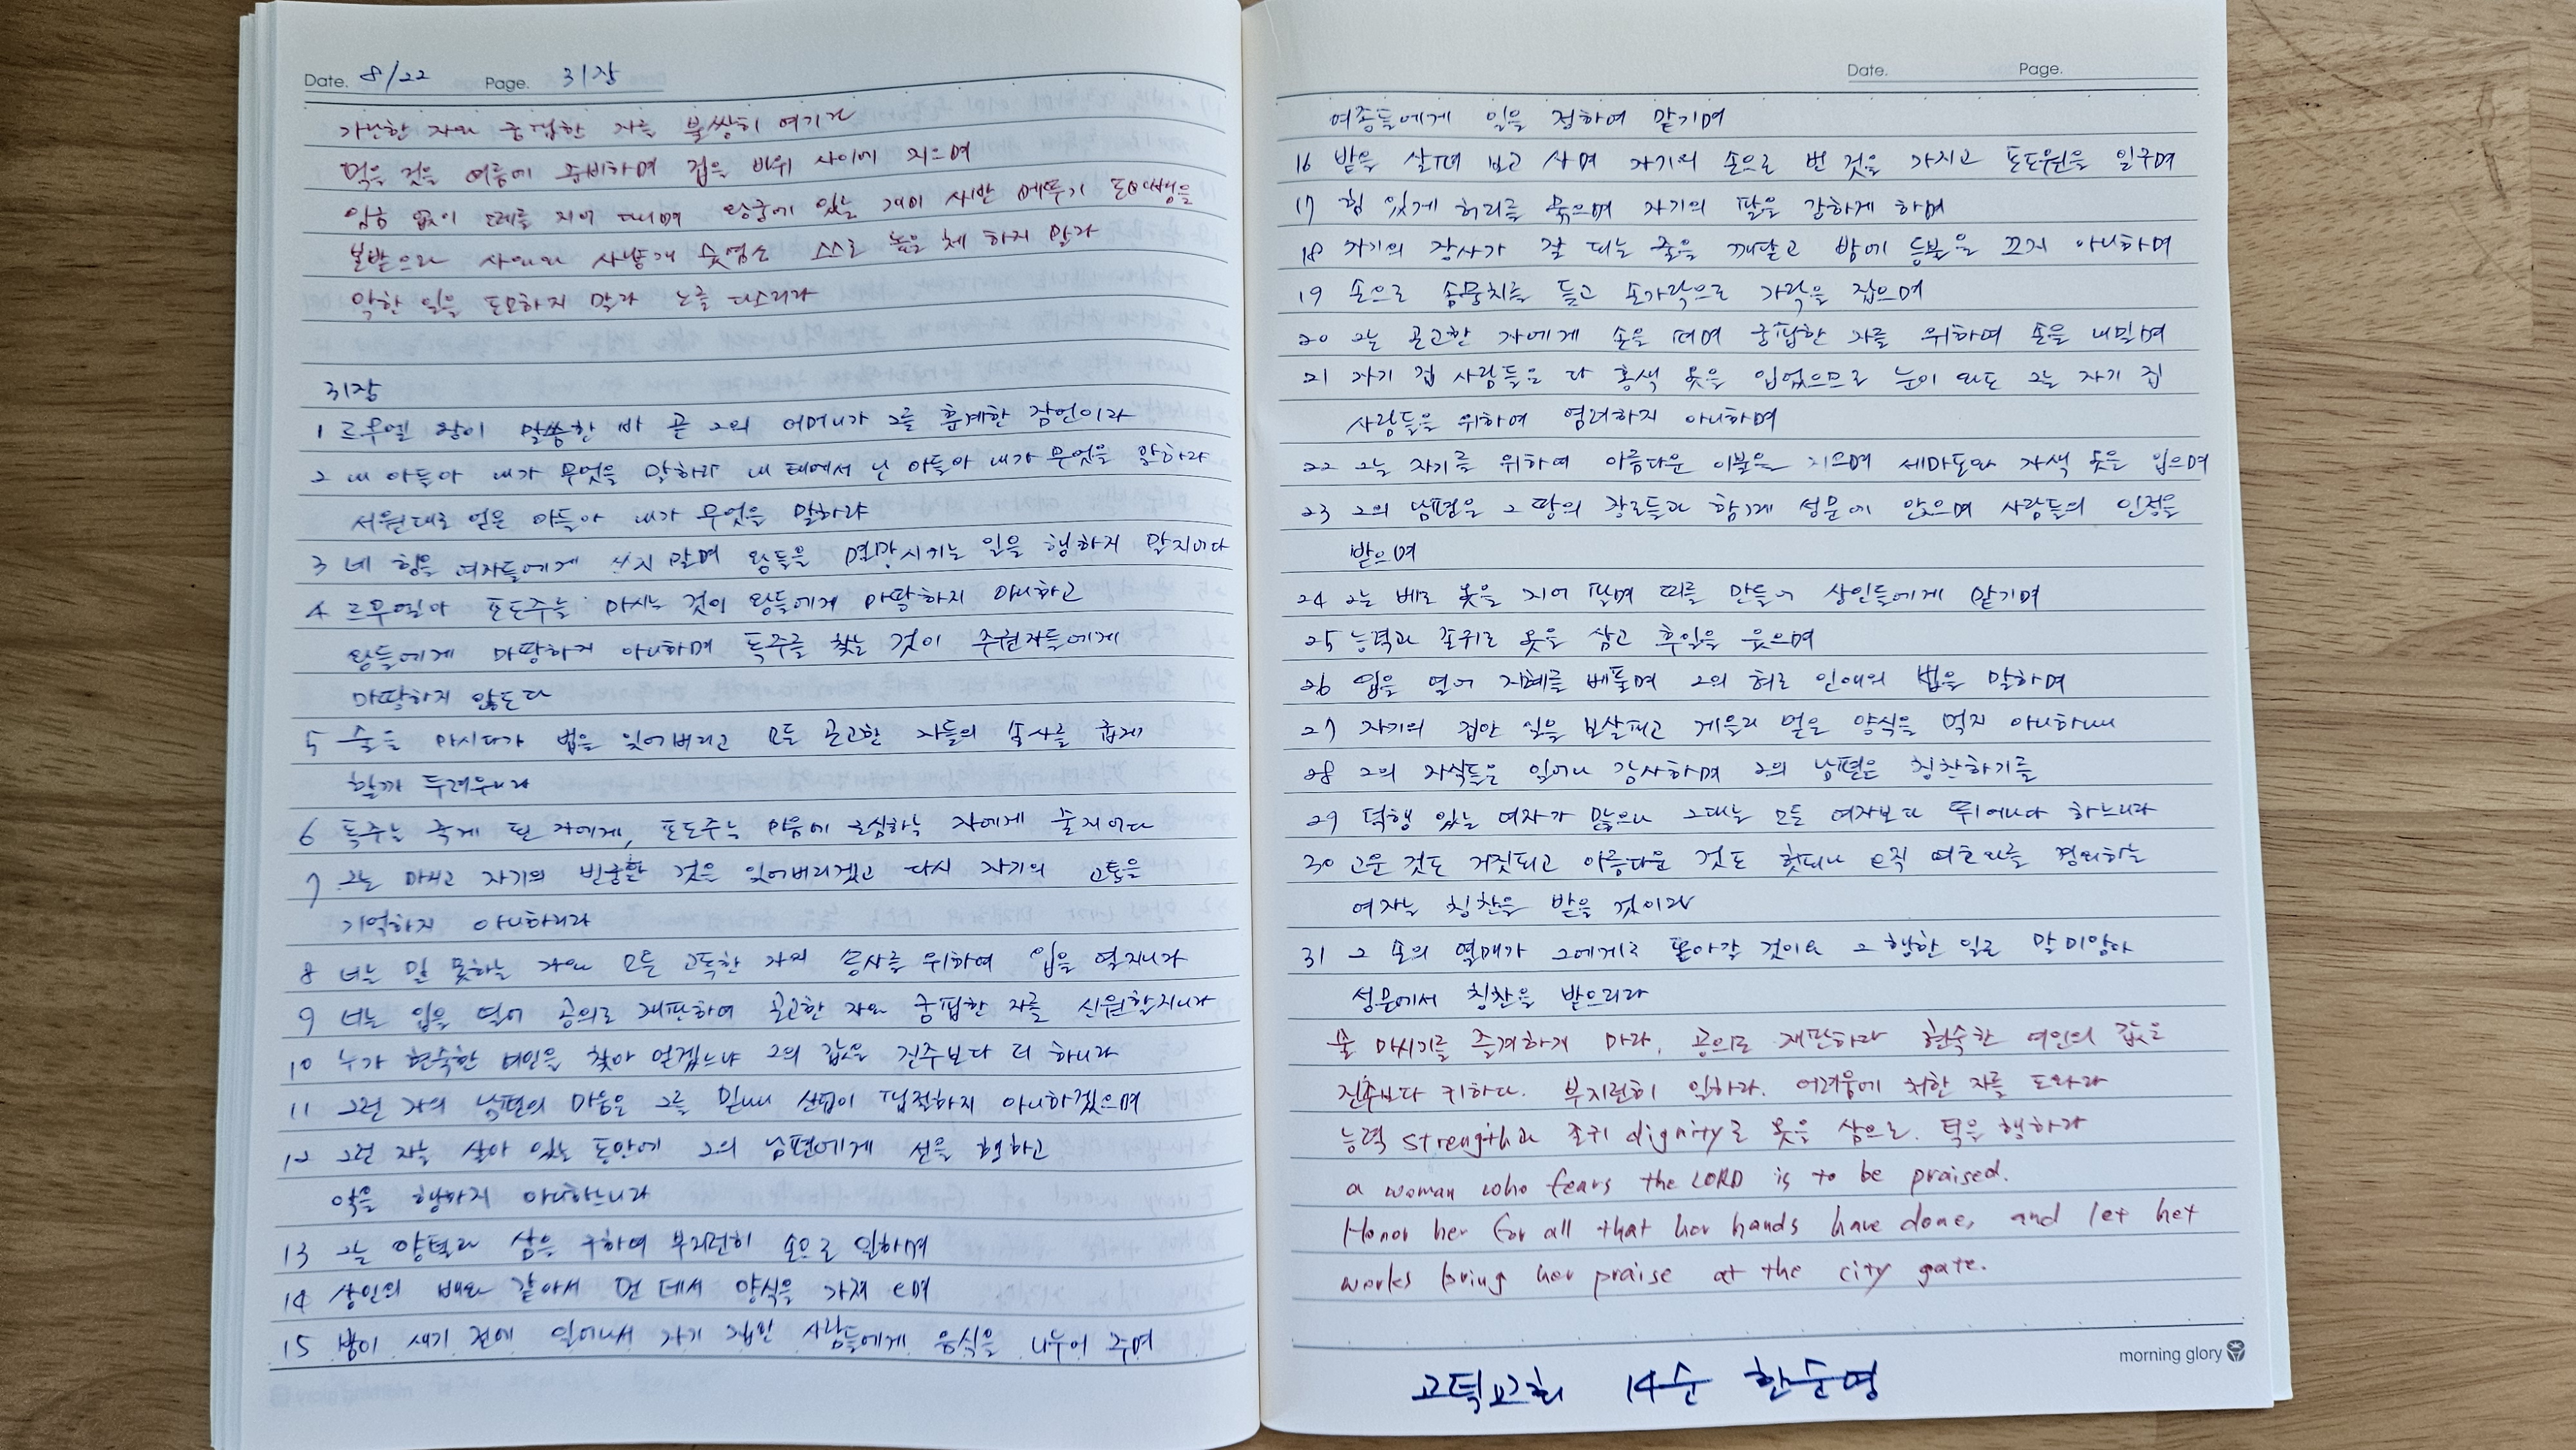 Date. 8/22 Page. 31장
가난한 자와 궁핍한 자를 불쌍히 여기라
먹을 것을 여름에 준비하며 집을 바위 사이에 지으며
임금 없이 떼를 지어 다니며 왕궁에 있는 개미 사반 메뚜기 도마뱀을
본받으라 사자와 사냥개 숫염소 스스로 높은 체 하지 말라
악한 일을 도모하지 말라 노를 다스리라
31장
1 르무엘 왕이 말씀한 바 곧 그의 어머니가 그를 훈계한 잠언이라
2 내 아들아 내가 무엇을 말하랴 내 태에서 난 아들아 내가 무엇을 말하랴
서원대로 얻은 아들아 내가 무엇을 말하랴
3 네 힘을 여자들에게 쓰지 말며 왕들을 멸망시키는 일을 행하지 말지어다
4 르무엘아 포도주를 마시는 것이 왕들에게 마땅하지 아니하고
왕들에게 마땅하지 아니하며 독주를 찾는 것이 주권자들에게
마땅하지 않도다
5 술을 마시다가 법을 잊어버리고 모든 곤고한 자들의 송사를 굽게
할까 두려우니라
6 독주는 죽게 된 자에게, 포도주는 마음에 근심하는 자에게 줄지어다
7 그는 마시고 자기의 빈궁한 것을 잊어버리겠고 다시 자기의 고통을
기억하지 아니하리라
8 너는 말 못하는 자와 모든 고독한 자의 송사를 위하여 입을 열지니라
9 너는 입을 열어 공의로 재판하여 곤고한 자와 궁핍한 자를 신원할지니라
10 누가 현숙한 여인을 찾아 얻겠느냐 그의 값은 진주보다 더 하니라
11 그런 자의 남편의 마음은 그를 믿나니 산업이 핍절하지 아니하겠으며
12 그런 자는 살아 있는 동안에 그의 남편에게 선을 행하고
악을 행하지 아니하느니라
13 그는 양털과 삼을 구하여 부지런히 손으로 일하며
14 상인의 배와 같아서 먼 데서 양식을 가져 오며
15 밤이 새기 전에 일어나서 자기 집안 사람들에게 음식을 나누어 주며
Date. Page.
여종들에게 일을 정하여 맡기며
16 밭을 살펴 보고 사며 자기의 손으로 번 것을 가지고 포도원을 일구며
17 힘 있게 허리를 묶으며 자기의 팔을 강하게 하며
18 자기의 장사가 잘 되는 줄을 깨닫고 밤에 등불을 끄지 아니하며
19 손으로 솜뭉치를 들고 손가락으로 가락을 잡으며
20 그는 곤고한 자에게 손을 펴며 궁핍한 자를 위하여 손을 내밀며
21 자기 집 사람들은 다 홍색 옷을 입었으므로 눈이 와도 그는 자기 집
사람들을 위하여 염려하지 아니하며
22 그는 자기를 위하여 아름다운 이불을 지으며 세마포와 자색 옷을 입으며
23 그의 남편은 그 땅의 장로들과 함께 성문에 앉으며 사람들의 인정을
받으며
24 그는 베로 옷을 지어 팔며 띠를 만들어 상인들에게 맡기며
25 능력과 존귀로 옷을 삼고 후일을 웃으며
26 입을 열어 지혜를 베풀며 그의 혀로 인애의 법을 말하며
27 자기의 집안 일을 보살피고 게을리 얻은 양식을 먹지 아니하나니
28 그의 자식들은 일어나 감사하며 그의 남편은 칭찬하기를
29 덕행 있는 여자가 많으나 그대는 모든 여자보다 뛰어나다 하느니라
30 고운 것도 거짓되고 아름다운 것도 헛되나 오직 여호와를 경외하는
여자는 칭찬을 받을 것이라
31 그 손의 열매가 그에게로 돌아갈 것이요 그 행한 일로 말미암아
성문에서 칭찬을 받으리라
술 마시기를 즐겨하게 마라, 공의로 재판하라 현숙한 여인의 값은
진주보다 귀하다. 부지런히 일하라. 어려움에 처한 자를 도와라
능력 strength과 존귀 dignity로 옷을 삼으로. 덕을 행하라
a woman who fears the LORD is to be praised.
Honor her for all that her hands have done, and let her
works bring her praise at the city gate.
morning glory
고덕교회 14순 한순영